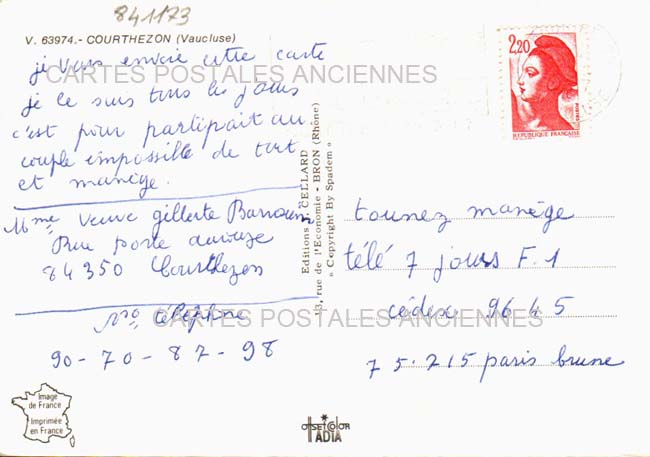 841173
V. 63974.- COURTHEZON (Vaucluse)
je vous envoie cette carte
CARTES POSTALES ANCIENNES
je le suis tous les jours
c'est pour partipait au
couple impossible de tort
et manège.
Mme Veuve gillerte Barroum
Rue porte
84350 Courthezon
no téléphne
CARTES POSTALES ANCIENNES
90-70-87-98
Editions J. CELLARD
13, rue de l'Economie - BRON (Rhône)
« Copyright By Spadem »
2,20
REPUBLIQUE FRANÇAISE
tounez manège
télé 7 jours F.1
cédex 9645
75.215 paris brune
Image
de France
Imprimée
en France
OFFSET COLOR
IADTA